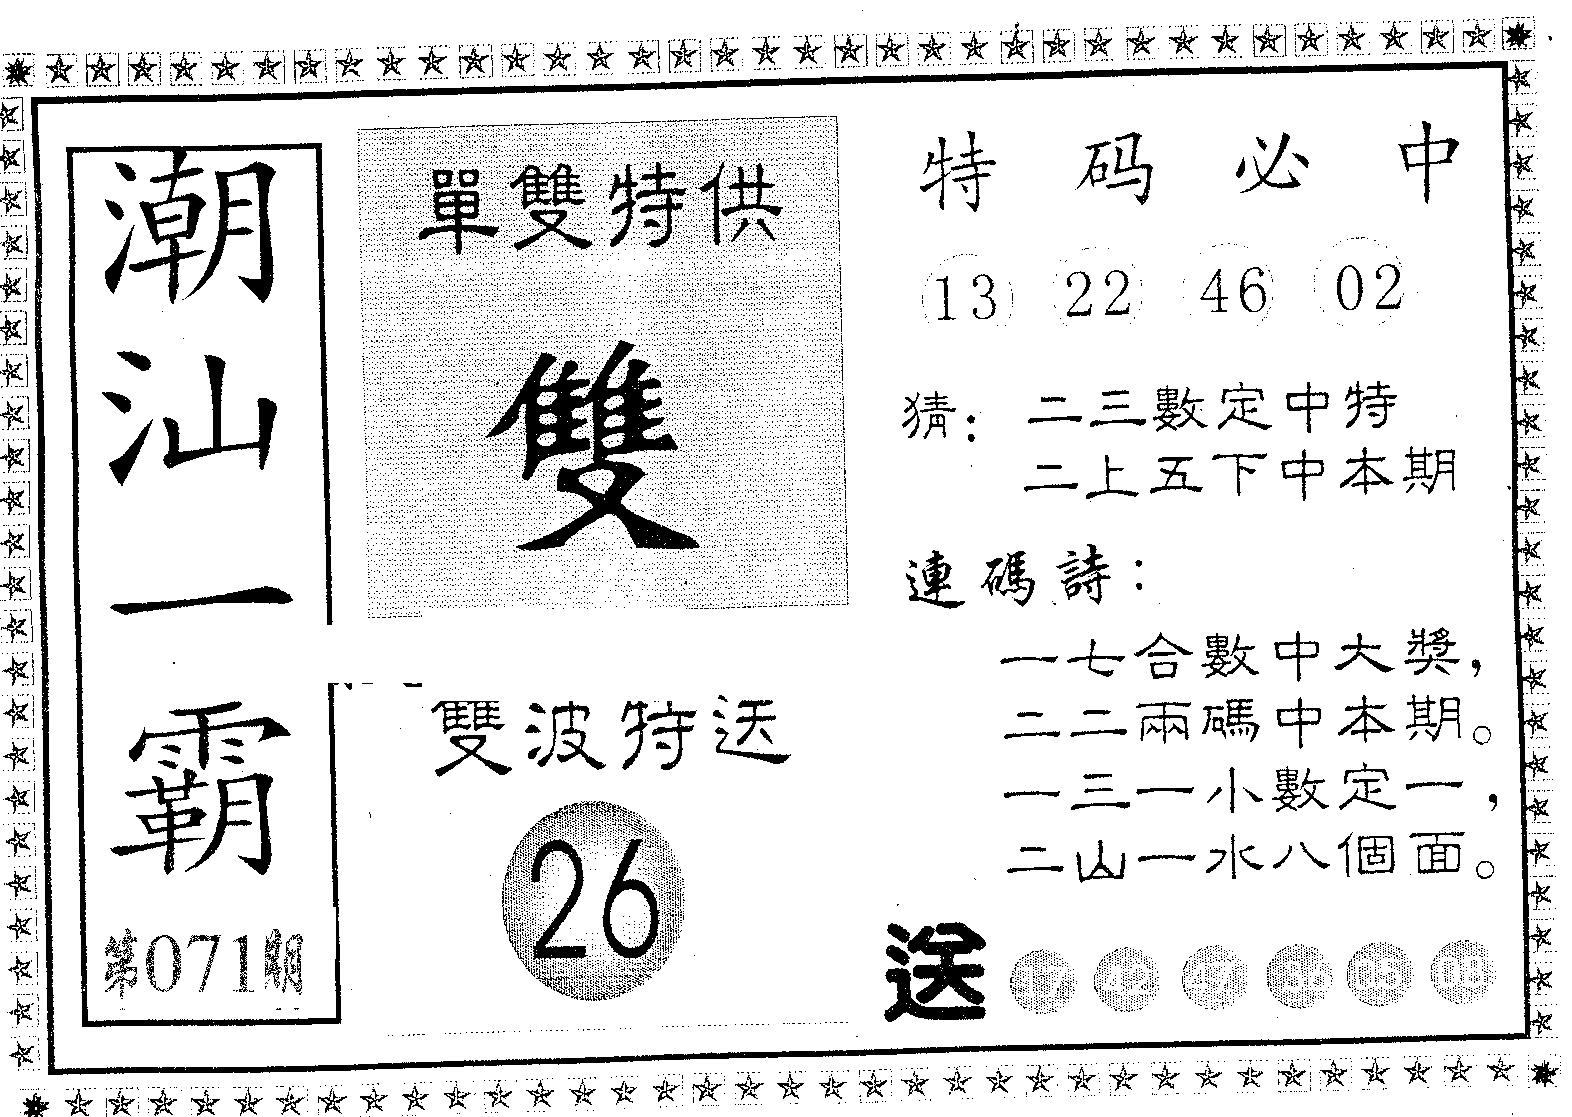 潮汕一霸
第071期
單雙特供
雙
雙波特送
26
特码必中
13 22 46 02
猜：二三數定中特
二上五下中本期
連碼詩：
一七合數中大獎，
二二兩碼中本期。
一三一小數定一，
二山一水八個面。
送